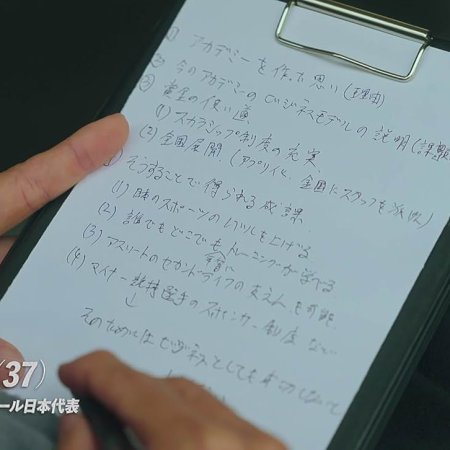 ① アカデミーを作った思い(理由)
② 今のアカデミーのビジネスモデルの説明(課題
③ 賞金の使い道
(1) スカラシップ制度の充実
(2) 全国展開 (アプリ化、全国にスタッフを派遣)
④ そうすることで得られる成果
(1) 日本のスポーツのレベルを上げる
(2) 誰でもどこでもトレーニングが学べる
(3) アスリートのセカンドライフの支えんも可能
(4) マイナー競技選手のスポンサー制度 など
↓
そのためにはビジネスとしても
(37)
ール日本代表